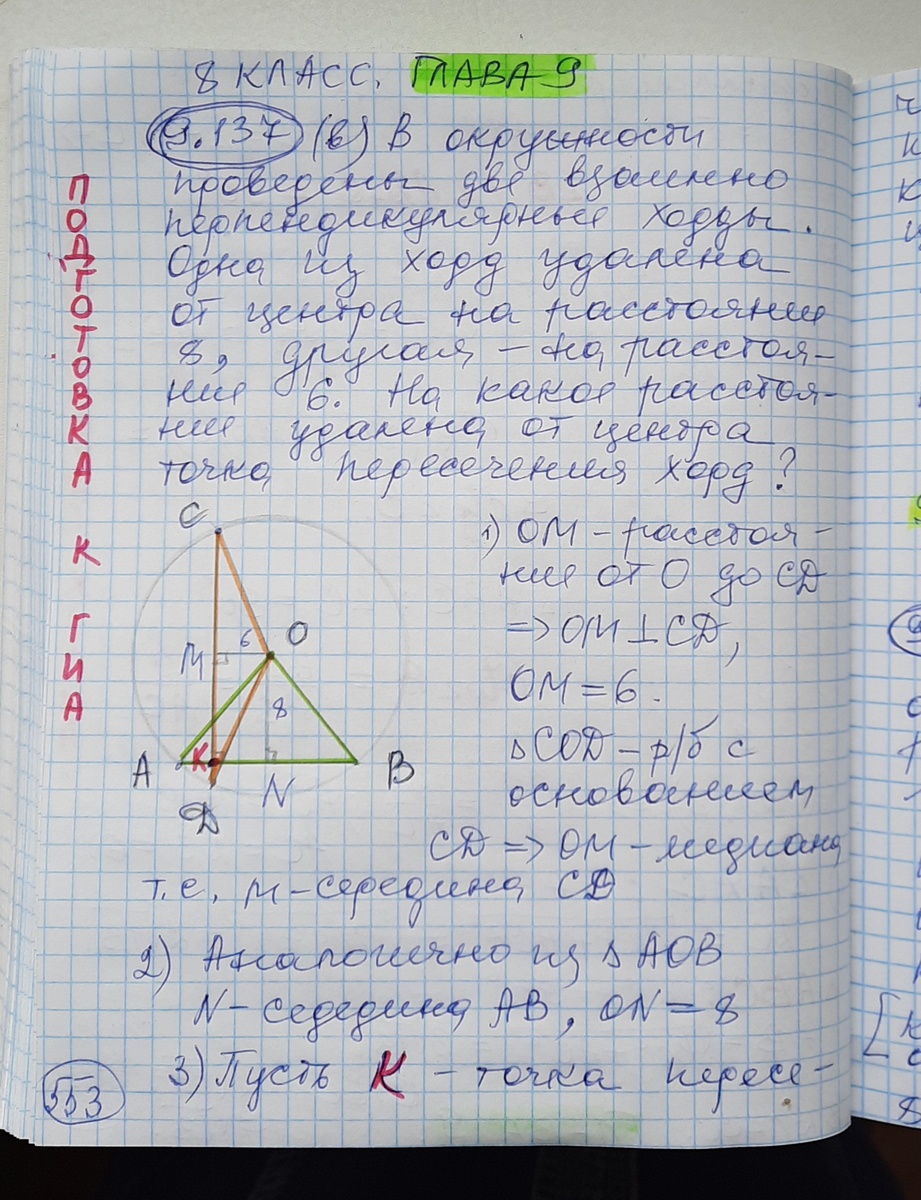 8 КЛАСС. ГЛАВА 9
9.137 (в) В окружности
проведены две взаимно
перпендикулярные хорды.
Одна из хорд удалена
от центра на расстояние
8, другая – на расстоя-
ние 6. На какое расстоя-
ние удалена от центра
точка пересечения хорд?
ПОДГОТОВКА К ГИА
C
O
6
M
8
A
K
B
N
D
1) OM – расстоя-
ние от O до CD
=> OM ⊥ CD,
OM = 6.
△COD – р/б с
основанием
CD => OM – медиана
т.е. M – середина CD
2) Аналогично из △AOB
N – середина AB, ON = 8
3) Пусть K – точка пересе-
553